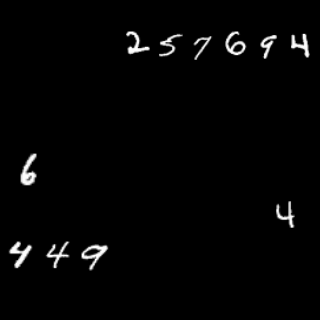 257694
6
4
449